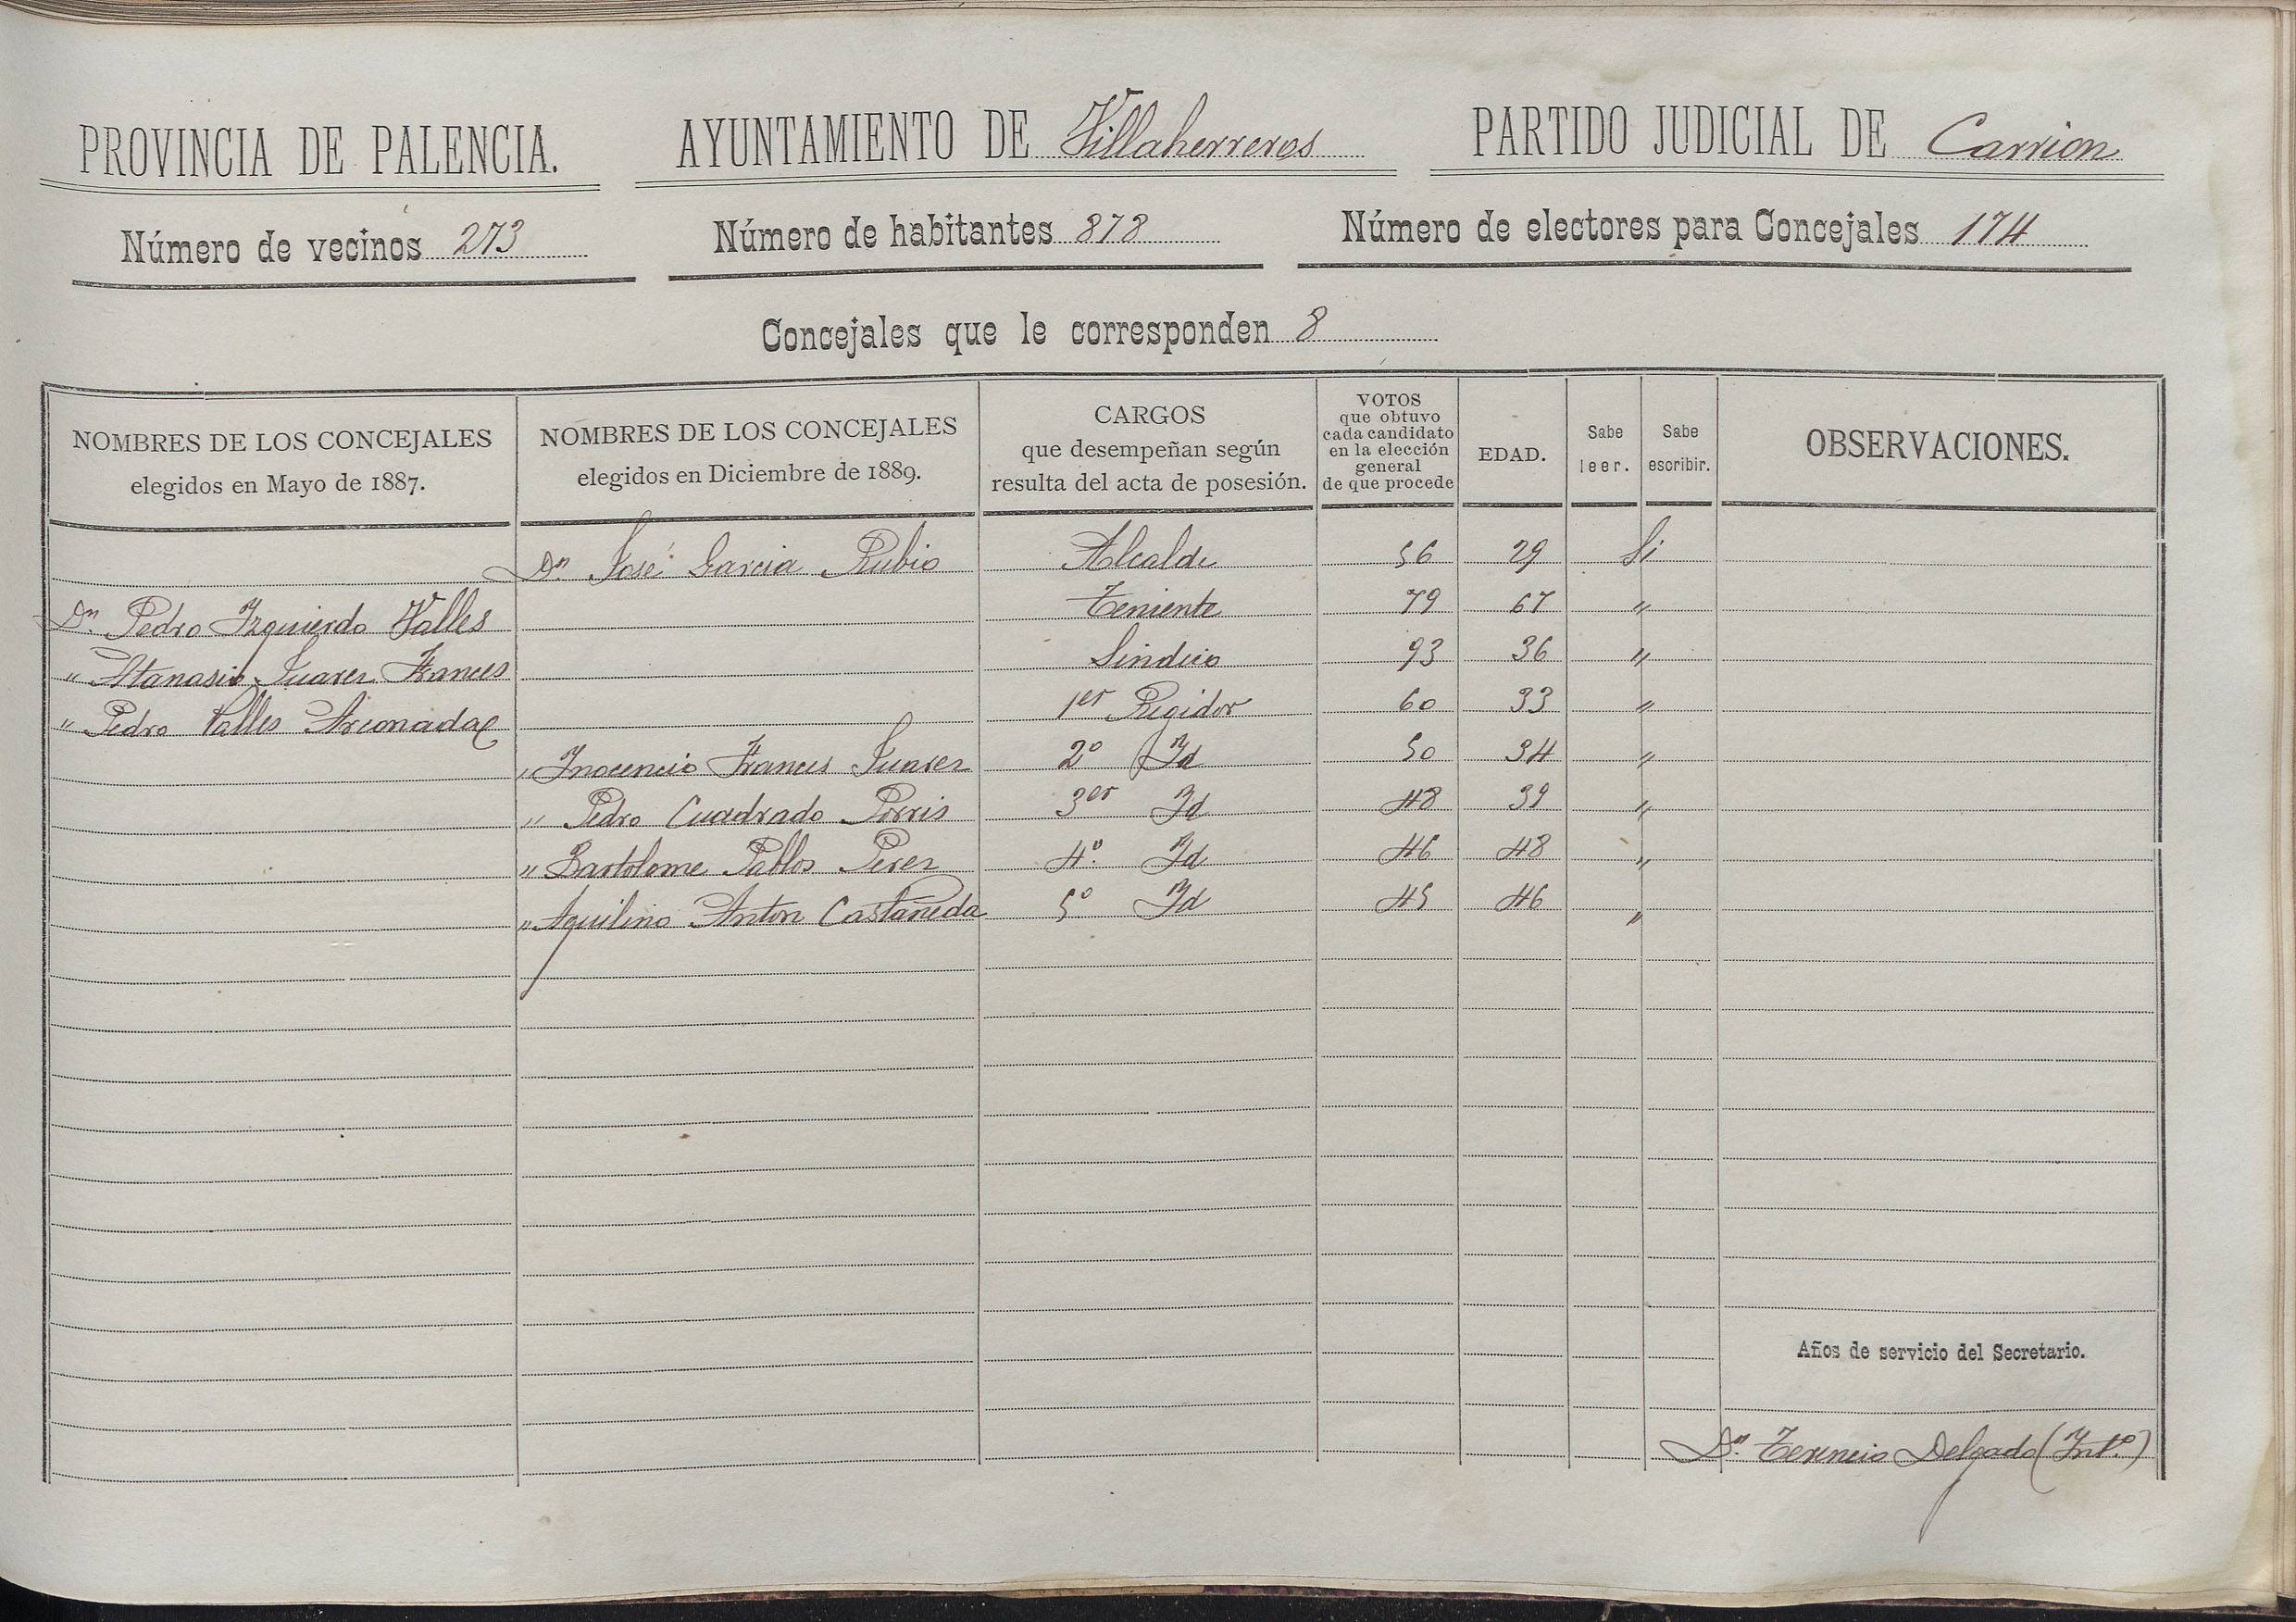 PROVINCIA DE PALENCIA. AYUNTAMIENTO DE Villaherreros PARTIDO JUDICIAL DE Carrion
Número de vecinos 273 Número de habitantes 878 Número de electores para Concejales 174
Concejales que le corresponden 8
NOMBRES DE LOS CONCEJALES
elegidos en Mayo de 1887.
NOMBRES DE LOS CONCEJALES
elegidos en Diciembre de 1889.
CARGOS
que desempeñan según
resulta del acta de posesión.
VOTOS
que obtuvo
cada candidato
en la elección
general
de que procede
EDAD.
Sabe
leer.
Sabe
escribir.
OBSERVACIONES.
Dn. José Garcia Rubio Alcalde 56 29 Si
Dn. Pedro Izquierdo Valles Teniente 79 67 "
" Atanasio Suarez Frances Sindico 93 36 "
" Pedro Valles Arconada 1er Regidor 60 33 "
" Inocencio Frances Suarez 2º Id 50 34 "
" Pedro Cuadrado Porris 3er Id 48 39 "
" Bartolome Pablos Perez 4º. Id 46 48 "
" Aquilino Anton Castañeda 5º Id 45 46 "
Años de servicio del Secretario.
Dn. Terencio Delgado (Intº.)